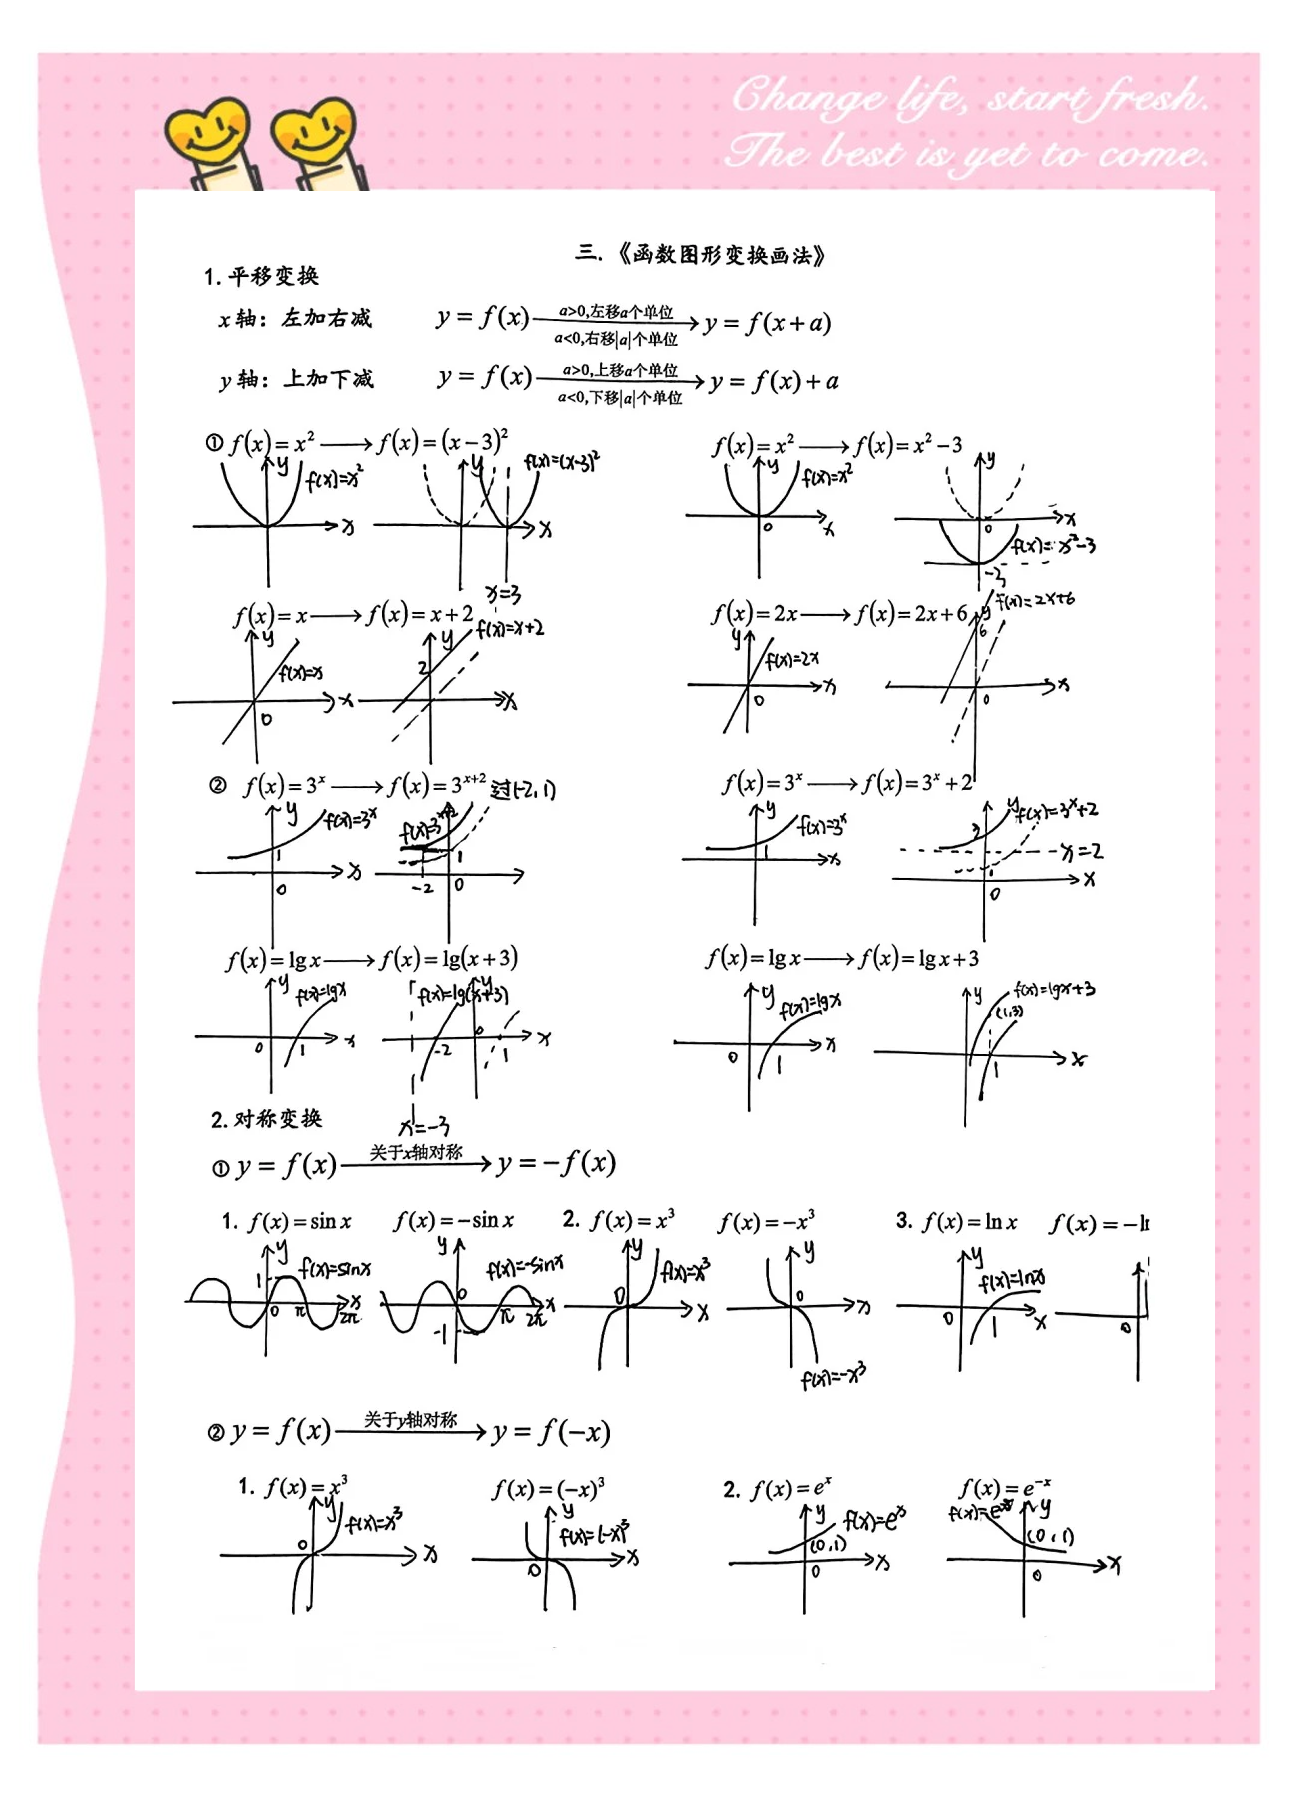 Change life, start fresh.
The best is yet to come.
三.《函数图形变换画法》
1.平移变换
x 轴：左加右减 y = f(x) a>0,左移a个单位 a<0,右移|a|个单位 → y = f(x+a)
y 轴：上加下减 y = f(x) a>0,上移a个单位 a<0,下移|a|个单位 → y = f(x)+a
① f(x) = x² → f(x) = (x−3)² f(x) = x² → f(x) = x²−3
y f(x)=x² x y f(x)=(x-3)² x x=3
y f(x)=x² 0 x y 0 x f(x)=x²-3 -3
f(x) = x → f(x) = x+2 f(x) = 2x → f(x) = 2x+6
y f(x)=x 0 x y 2 f(x)=x+2 x
y f(x)=2x 0 x y 6 f(x)=2x+6 0 x
② f(x) = 3ˣ → f(x) = 3ˣ⁺² 过(-2,1) f(x) = 3ˣ → f(x) = 3ˣ+2
y f(x)=3ˣ 1 0 x f(x)=3ˣ⁺² 1 -2 0
y f(x)=3ˣ 1 x y f(x)=3ˣ+2 3 x=2 1 0 x
f(x) = lg x → f(x) = lg(x+3) f(x) = lg x → f(x) = lg x+3
y f(x)=lgx 0 1 x y f(x)=lg(x+3) 0 -2 1 x x=-3
y f(x)=lgx 0 1 x y f(x)=lgx+3 (1,3) 1 x
2.对称变换
① y = f(x) 关于x轴对称 → y = −f(x)
1. f(x) = sin x f(x) = −sin x 2. f(x) = x³ f(x) = −x³ 3. f(x) = ln x f(x) = −l
y f(x)=sinx 1 0 π 2π x y f(x)=-sinx 0 -1 π 2π x
y f(x)=x³ 0 x y 0 x f(x)=-x³
y f(x)=lnx 0 1 x 0
② y = f(x) 关于y轴对称 → y = f(−x)
1. f(x) = x³ f(x) = (−x)³ 2. f(x) = eˣ f(x) = e⁻ˣ
y f(x)=x³ 0 x y f(x)=(-x)³ 0 x
y f(x)=eˣ (0,1) 0 x y (0,1) 0 x